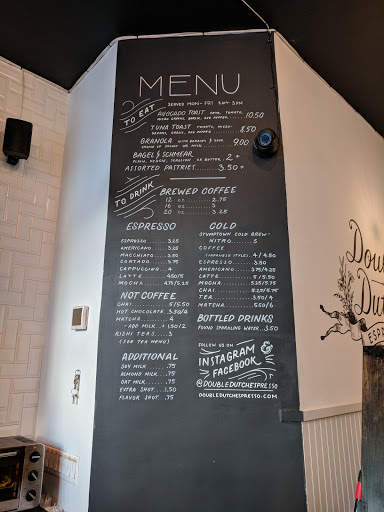 MENU
SERVED MON-FRI 8AM-3PM
TO EAT
AVOCADO TOAST 10.50
MICRO GREENS, RADISH, RED PEPPER
TUNA TOAST 8.50
GRANOLA 9.00
BAGEL & SCHMEAR 2+
ASSORTED PASTRIES 3.50+
TO DRINK
BREWED COFFEE
12 OZ 2.75
16 OZ 3
20 OZ 3.25
ESPRESSO
ESPRESSO 3.25
AMERICANO 3.25
MACCHIATO 3.50
CORTADO 3.75
CAPPUCCINO 4
LATTE 4.50/5
MOCHA 4.75/5.25
NOT COFFEE
CHAI 5/5.50
HOT CHOCOLATE 3.50/4
MATCHA 4
-ADD MILK + 1.50/2
RISHI TEAS 3
(SEE TEA MENU)
ADDITIONAL
SOY MILK .75
ALMOND MILK .75
OAT MILK .75
EXTRA SHOT 1.50
FLAVOR SHOT .75
COLD
STUMPTOWN COLD BREW
NITRO 5
COFFEE
(JAPANESE STYLE) 4/4.50
ESPRESSO 3.50
AMERICANO 3.75/4.25
LATTE 5/5.50
MOCHA 5.25/5.75
CHAI 5.25/5.75
TEA 3.50/4
MATCHA 5.50/6
BOTTLED DRINKS
FOUND SPARKLING WATER 3.50
FOLLOW US ON
INSTAGRAM
& FACEBOOK
@DOUBLEDUTCHESPRESSO
DOUBLEDUTCHESPRESSO.COM
Dou
Du
ESP